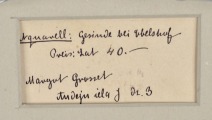 Aquarell: Gesinde bei Ebelshof
Preis: Lat 40.—
Margot Grosset
Andeju iela J dz. 3